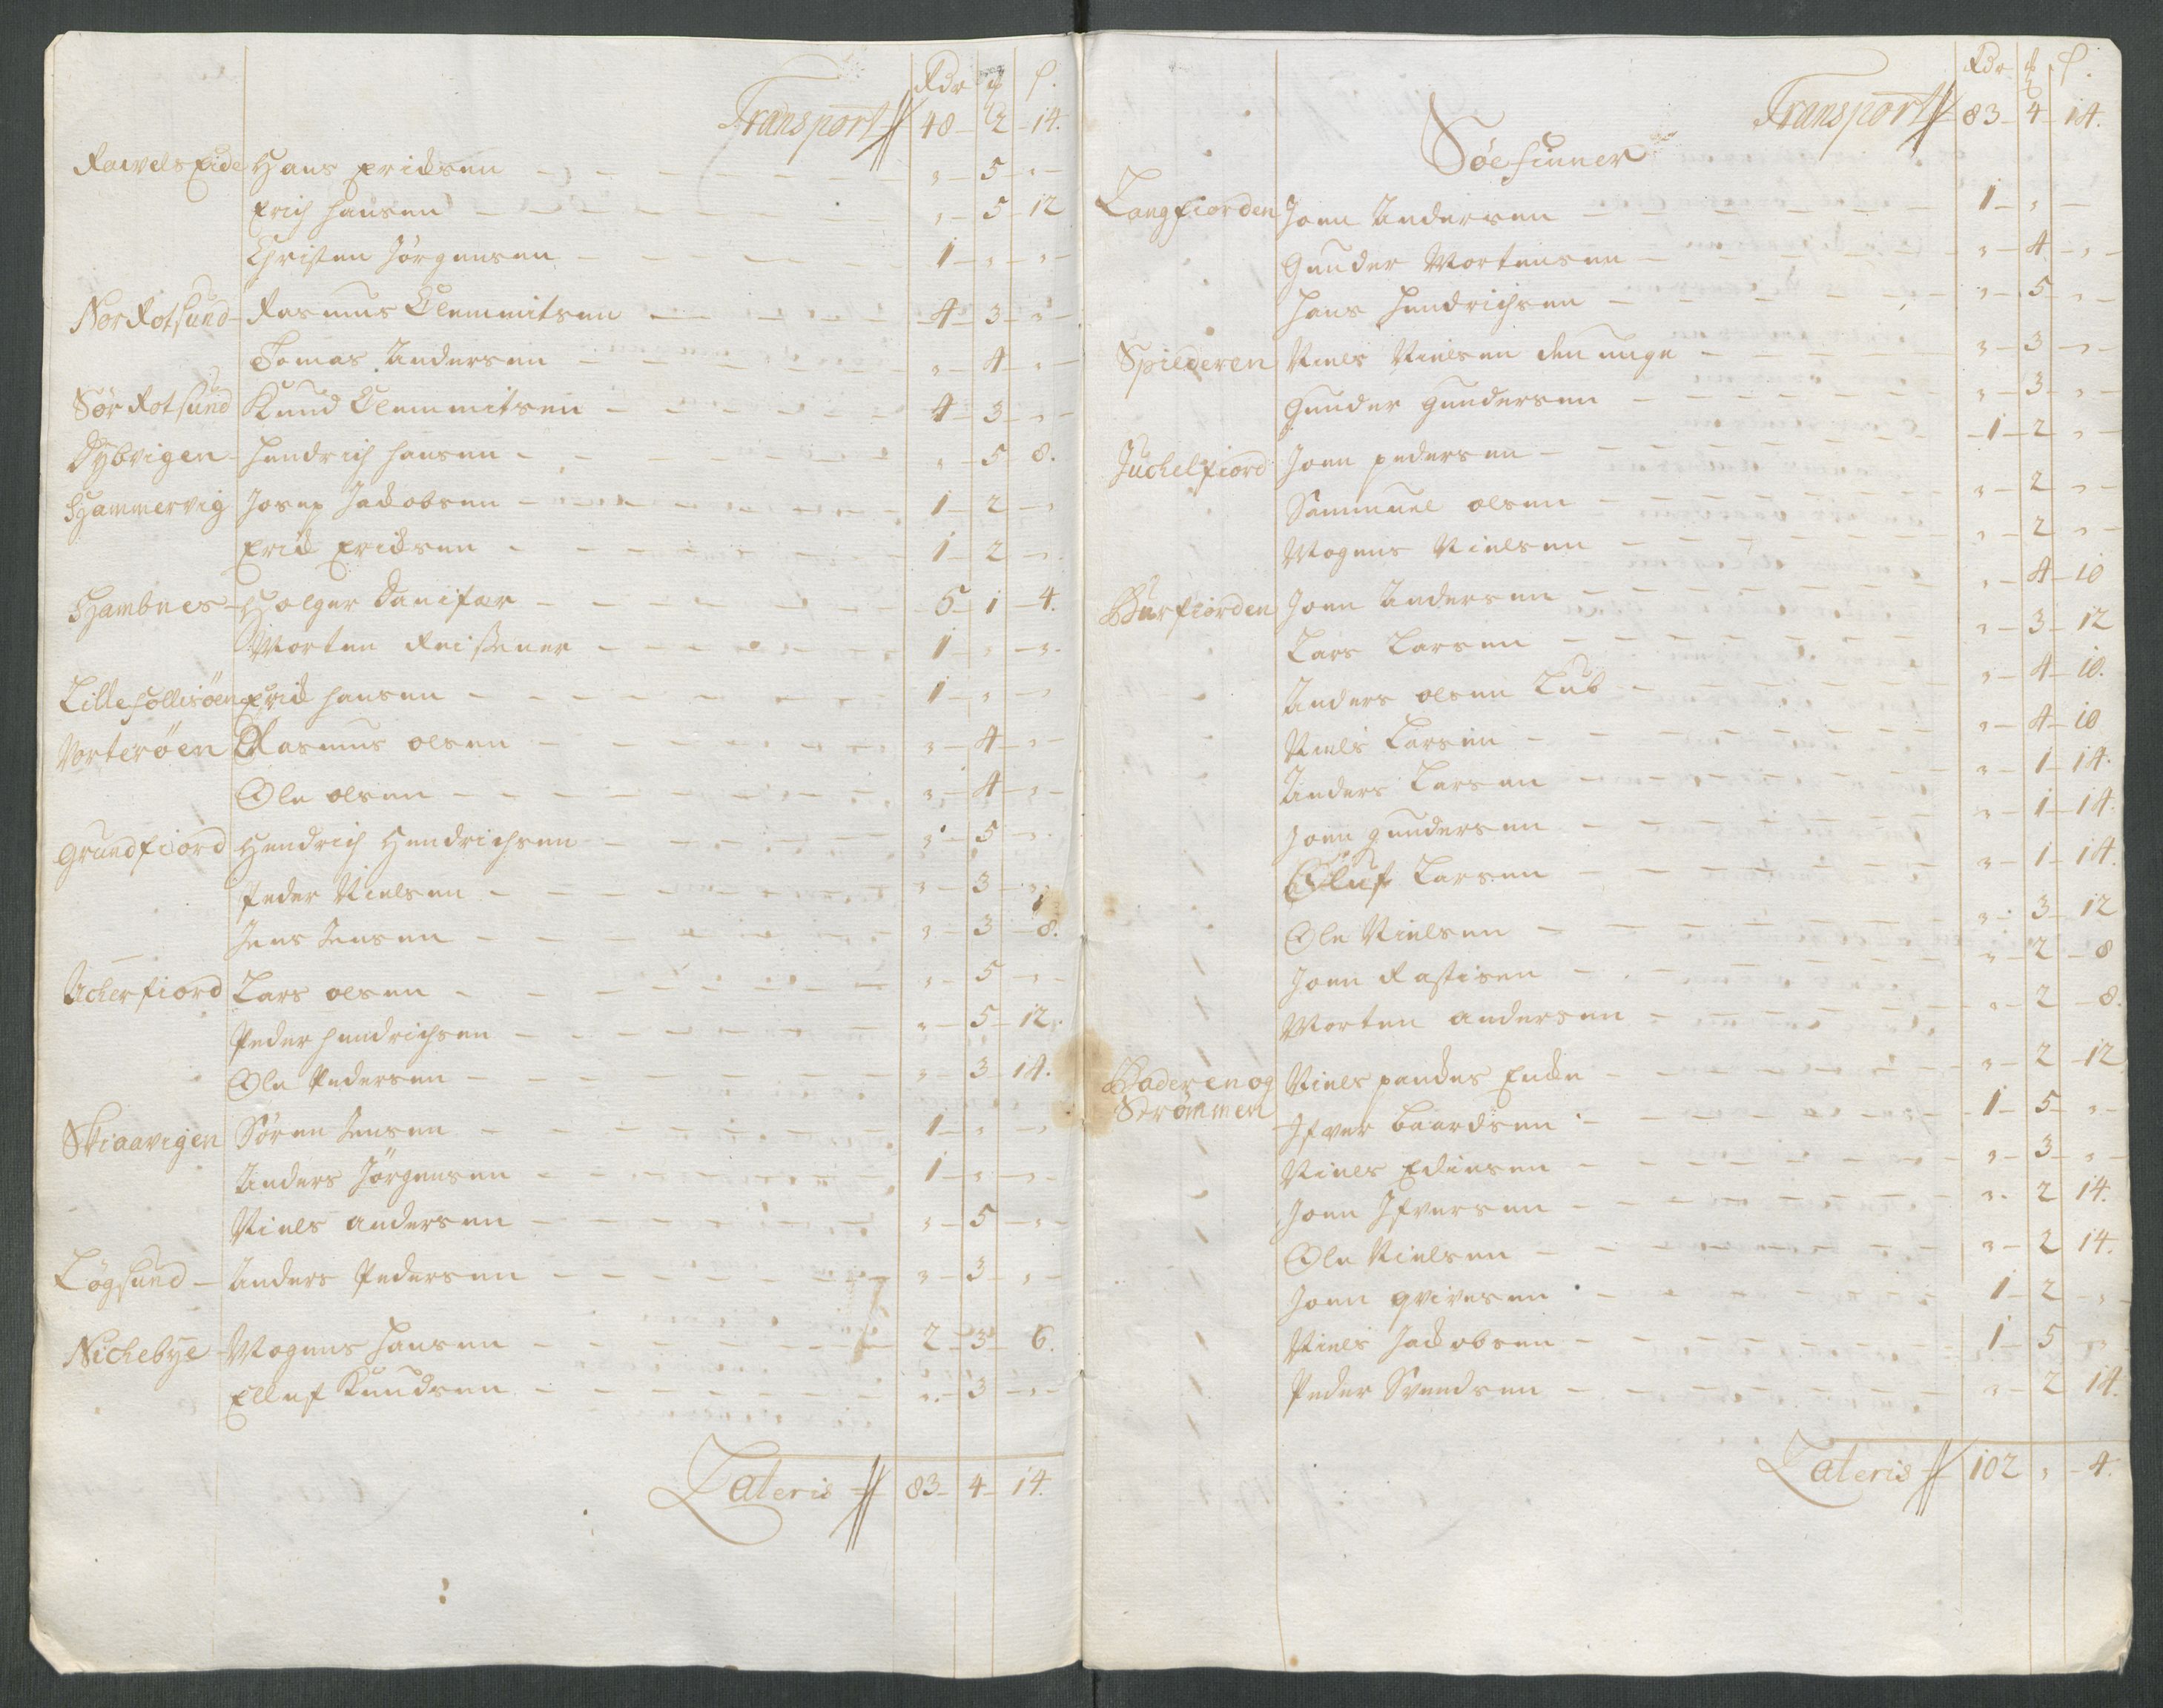 Rdr ₰ s.
Transport 48 - 2 - 14.
Ravels Eide Hans Erichsen - , - 5 - , -
Erich Hansen - , - 5 - 12
Christen Jørgensen - 1 - , - , -
Nor Rotsund - Rasmus Clemmitsen - 4 - 3 - , -
Tomas Andersen - , - 4 - , -
Sør Rotsund Knud Clemmitsen - 4 - 3 - , -
Dybvigen - Hendrich Hansen - , - 5 8.
Hammervig Josep Jackobsen - 1 - 2 - ,
Erick Ericksen - 1 - 2 - ,
Hambnes - Holger Danifær - 6 - 1 - 4.
Morten Reissener - 1 - , - , -
Lille Follisøen Erick Hansen - 1 - , - ,
Vorterøen Rasmus Olsen - , - 4 - , -
Ole Olsen - , - 4 - , -
Grundfiord Hendrich Hendrichsen - , - 5 - ,
Peder Nielsen - , - 3 - ,
Jens Jensen - , - 3 - 8.
Ucherfiord Lars Olsen - , - 5 - , -
Peder Hendrichsen - , - 5 - 12.
Ole Pedersen - , - 3 - 14.
Skiaavigen Søren Jensen - 1 - , - ,
Anders Jørgensen - 1 - , - , -
Niels Andersen - , - 5 - , -
Løgsund - Anders Pedersen - , - 3 - , -
Nichebye - Mogens Hansen - 2 - 3 - 6.
Elluf Knudsen - , - 3 - , -
Lateris 83 - 4 - 14.
Rdr ₰ s.
Transport 83 - 4 - 14.
Søefinner
Langfiorden Joen Andersen - 1 - , -
Gunder Mortensen - , - 4 - , -
Hans Hendrichsen - , - 5 - , -
Spilderen Niels Nielsen den unge - , - 3 - , -
Gunder Gundersen - , - 3 - , -
Juchelfiord Joen Pedersen - 1 - 2 - , -
Sammuel Olsen - , - 2 - , -
Mogens Nielsen - , - 2 - , -
Burfiorden Joen Andersen - , - 4 - 10
Lars Larsen - , - 3 - 12
Anders Olsen Lub - , - 4 - 10.
Niels Larsen - , - 4 - 10
Anders Larsen - , - 1 - 14.
Joen Gundersen - , - 1 - 14.
Oluf Larsen - , - 1 - 14.
Ole Nielsen - , - 3 - 12
Joen Rastisen - , - 2 - 8
Morten Andersen - , - 2 - 8.
Baderen og Niels Pandes Encke - , - 2 - 12
Strømmen
Ifver Baardsen - 1 - 5 - , -
Niels Edinsen - , - 3 - , -
Joen Ifversen - , - 2 14.
Ole Nielsen - , - 2 14.
Joen Qvivesen - 1 - 2 - , -
Niels Jackobsen - 1 - 5 - ,
Peder Svendsen - , - 2 14.
Lateris 102 , - 4.